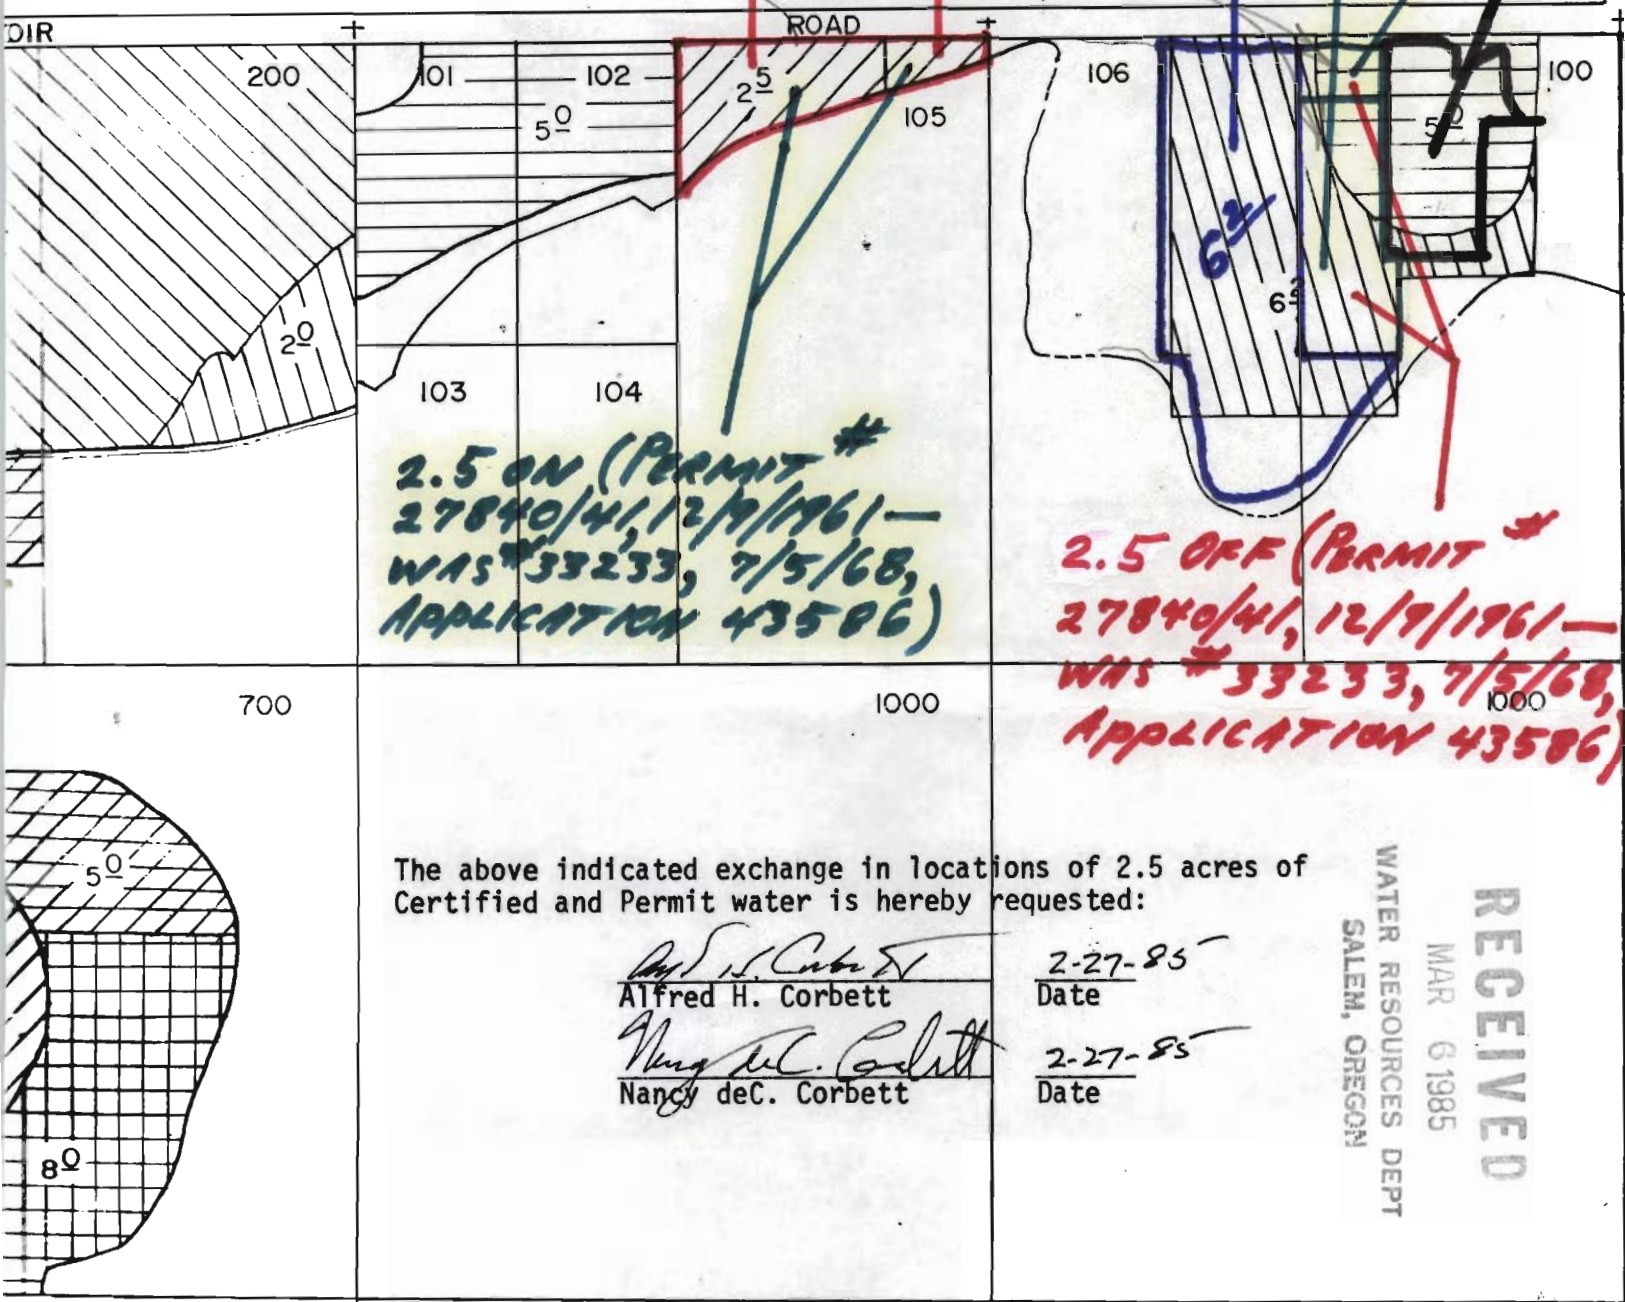 OIR
ROAD
200
101
102
2 5
105
106
100
5 0
5 0
6 2
6 2
2 0
103
104
2.5 ON (PERMIT #
27840/41, 12/9/1961—
WAS #33233, 7/5/68,
APPLICATION 43586)
2.5 OFF (PERMIT #
27840/41, 12/9/1961—
WAS #33233, 7/5/68,
APPLICATION 43586)
700
1000
1000
5 0
8 0
The above indicated exchange in locations of 2.5 acres of
Certified and Permit water is hereby requested:
2-27-85
Alfred H. Corbett
Date
Nancy deC. Corbett
2-27-85
Nancy deC. Corbett
Date
RECEIVED
MAR 6 1985
WATER RESOURCES DEPT
SALEM, OREGON